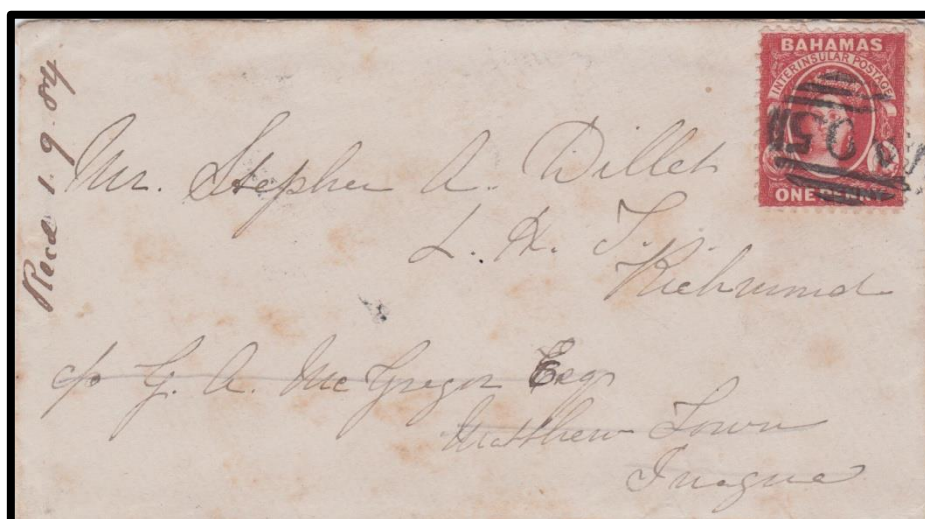 BAHAMAS
INTERINSULAR POSTAGE
ONE PENNY
Recd 1. 9. 84
Mr. Stephen A. Dillet
L. H. T.
Richmond
c/o G. A. McGregor Esqr
Matthew Town
Inagua